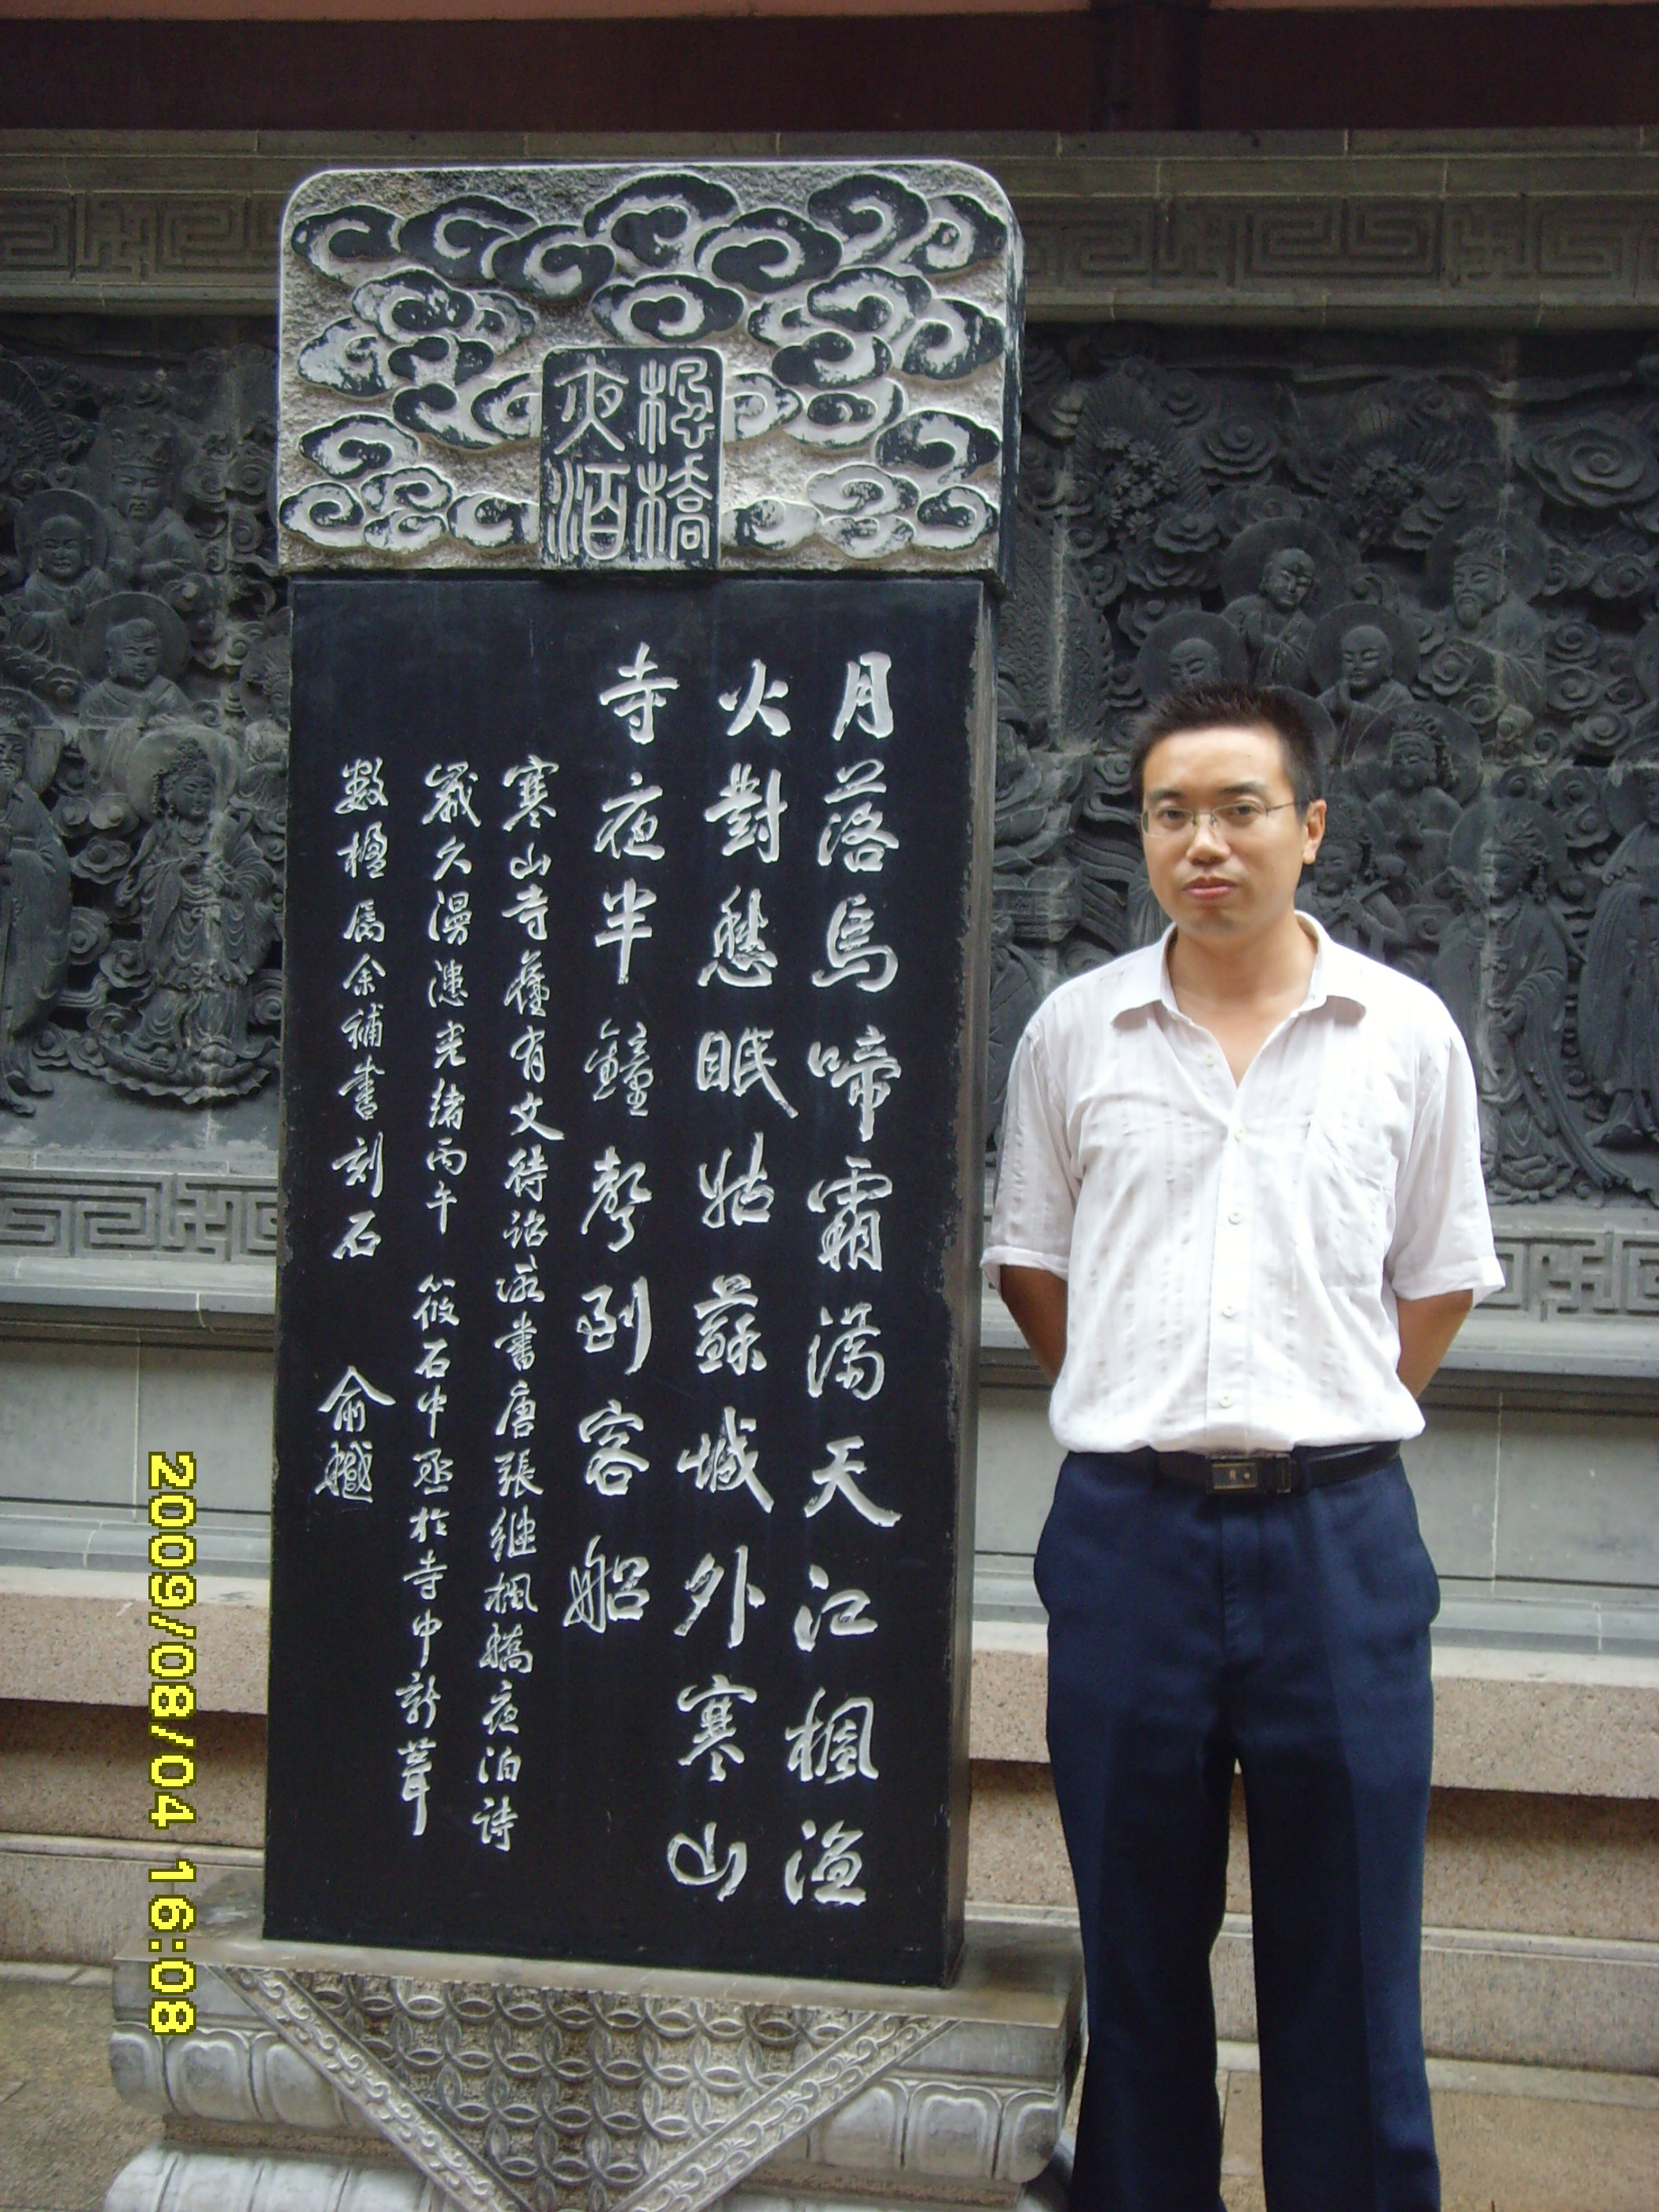 楓橋
夜泊
月落烏啼霜滿天江楓漁
火對愁眠姑蘇城外寒山
寺夜半鐘聲到客船
寒山寺舊有文待詔所書唐張繼楓橋夜泊詩
歲久漫漶光緒丙午 筱石中丞於寺中新葺
數楹屬余補書刻石 俞樾
2009/08/04 16:08